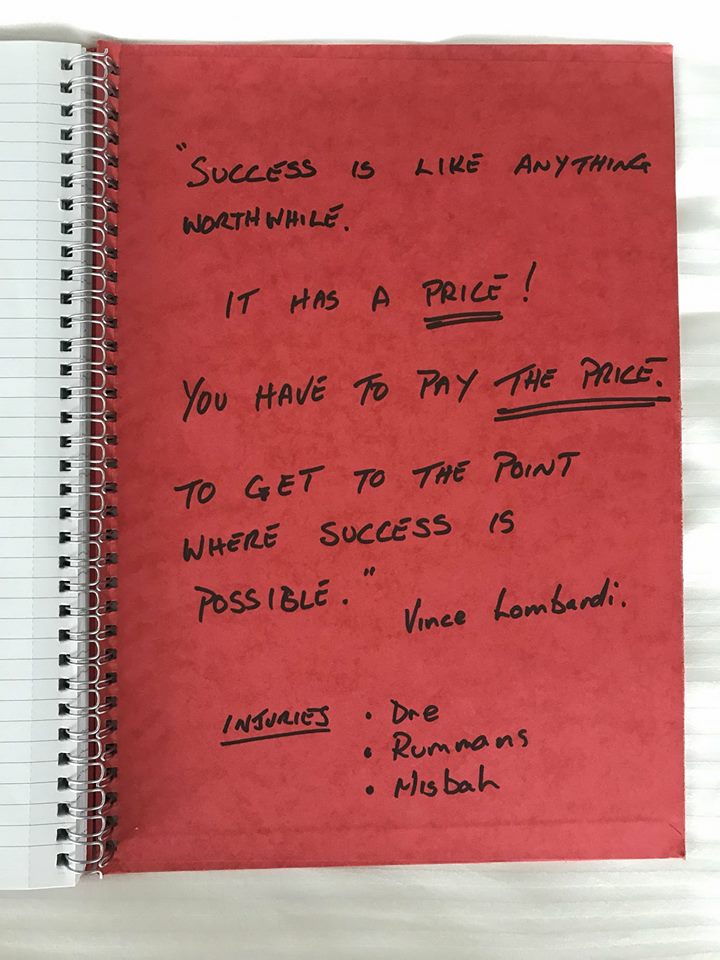 "SUCCESS IS LIKE ANYTHING
WORTHWHILE.
IT HAS A PRICE!
YOU HAVE TO PAY THE PRICE.
TO GET TO THE POINT
WHERE SUCCESS IS
POSSIBLE."
Vince Lombardi.
INJURIES • Dre
• Rummans
• Misbah